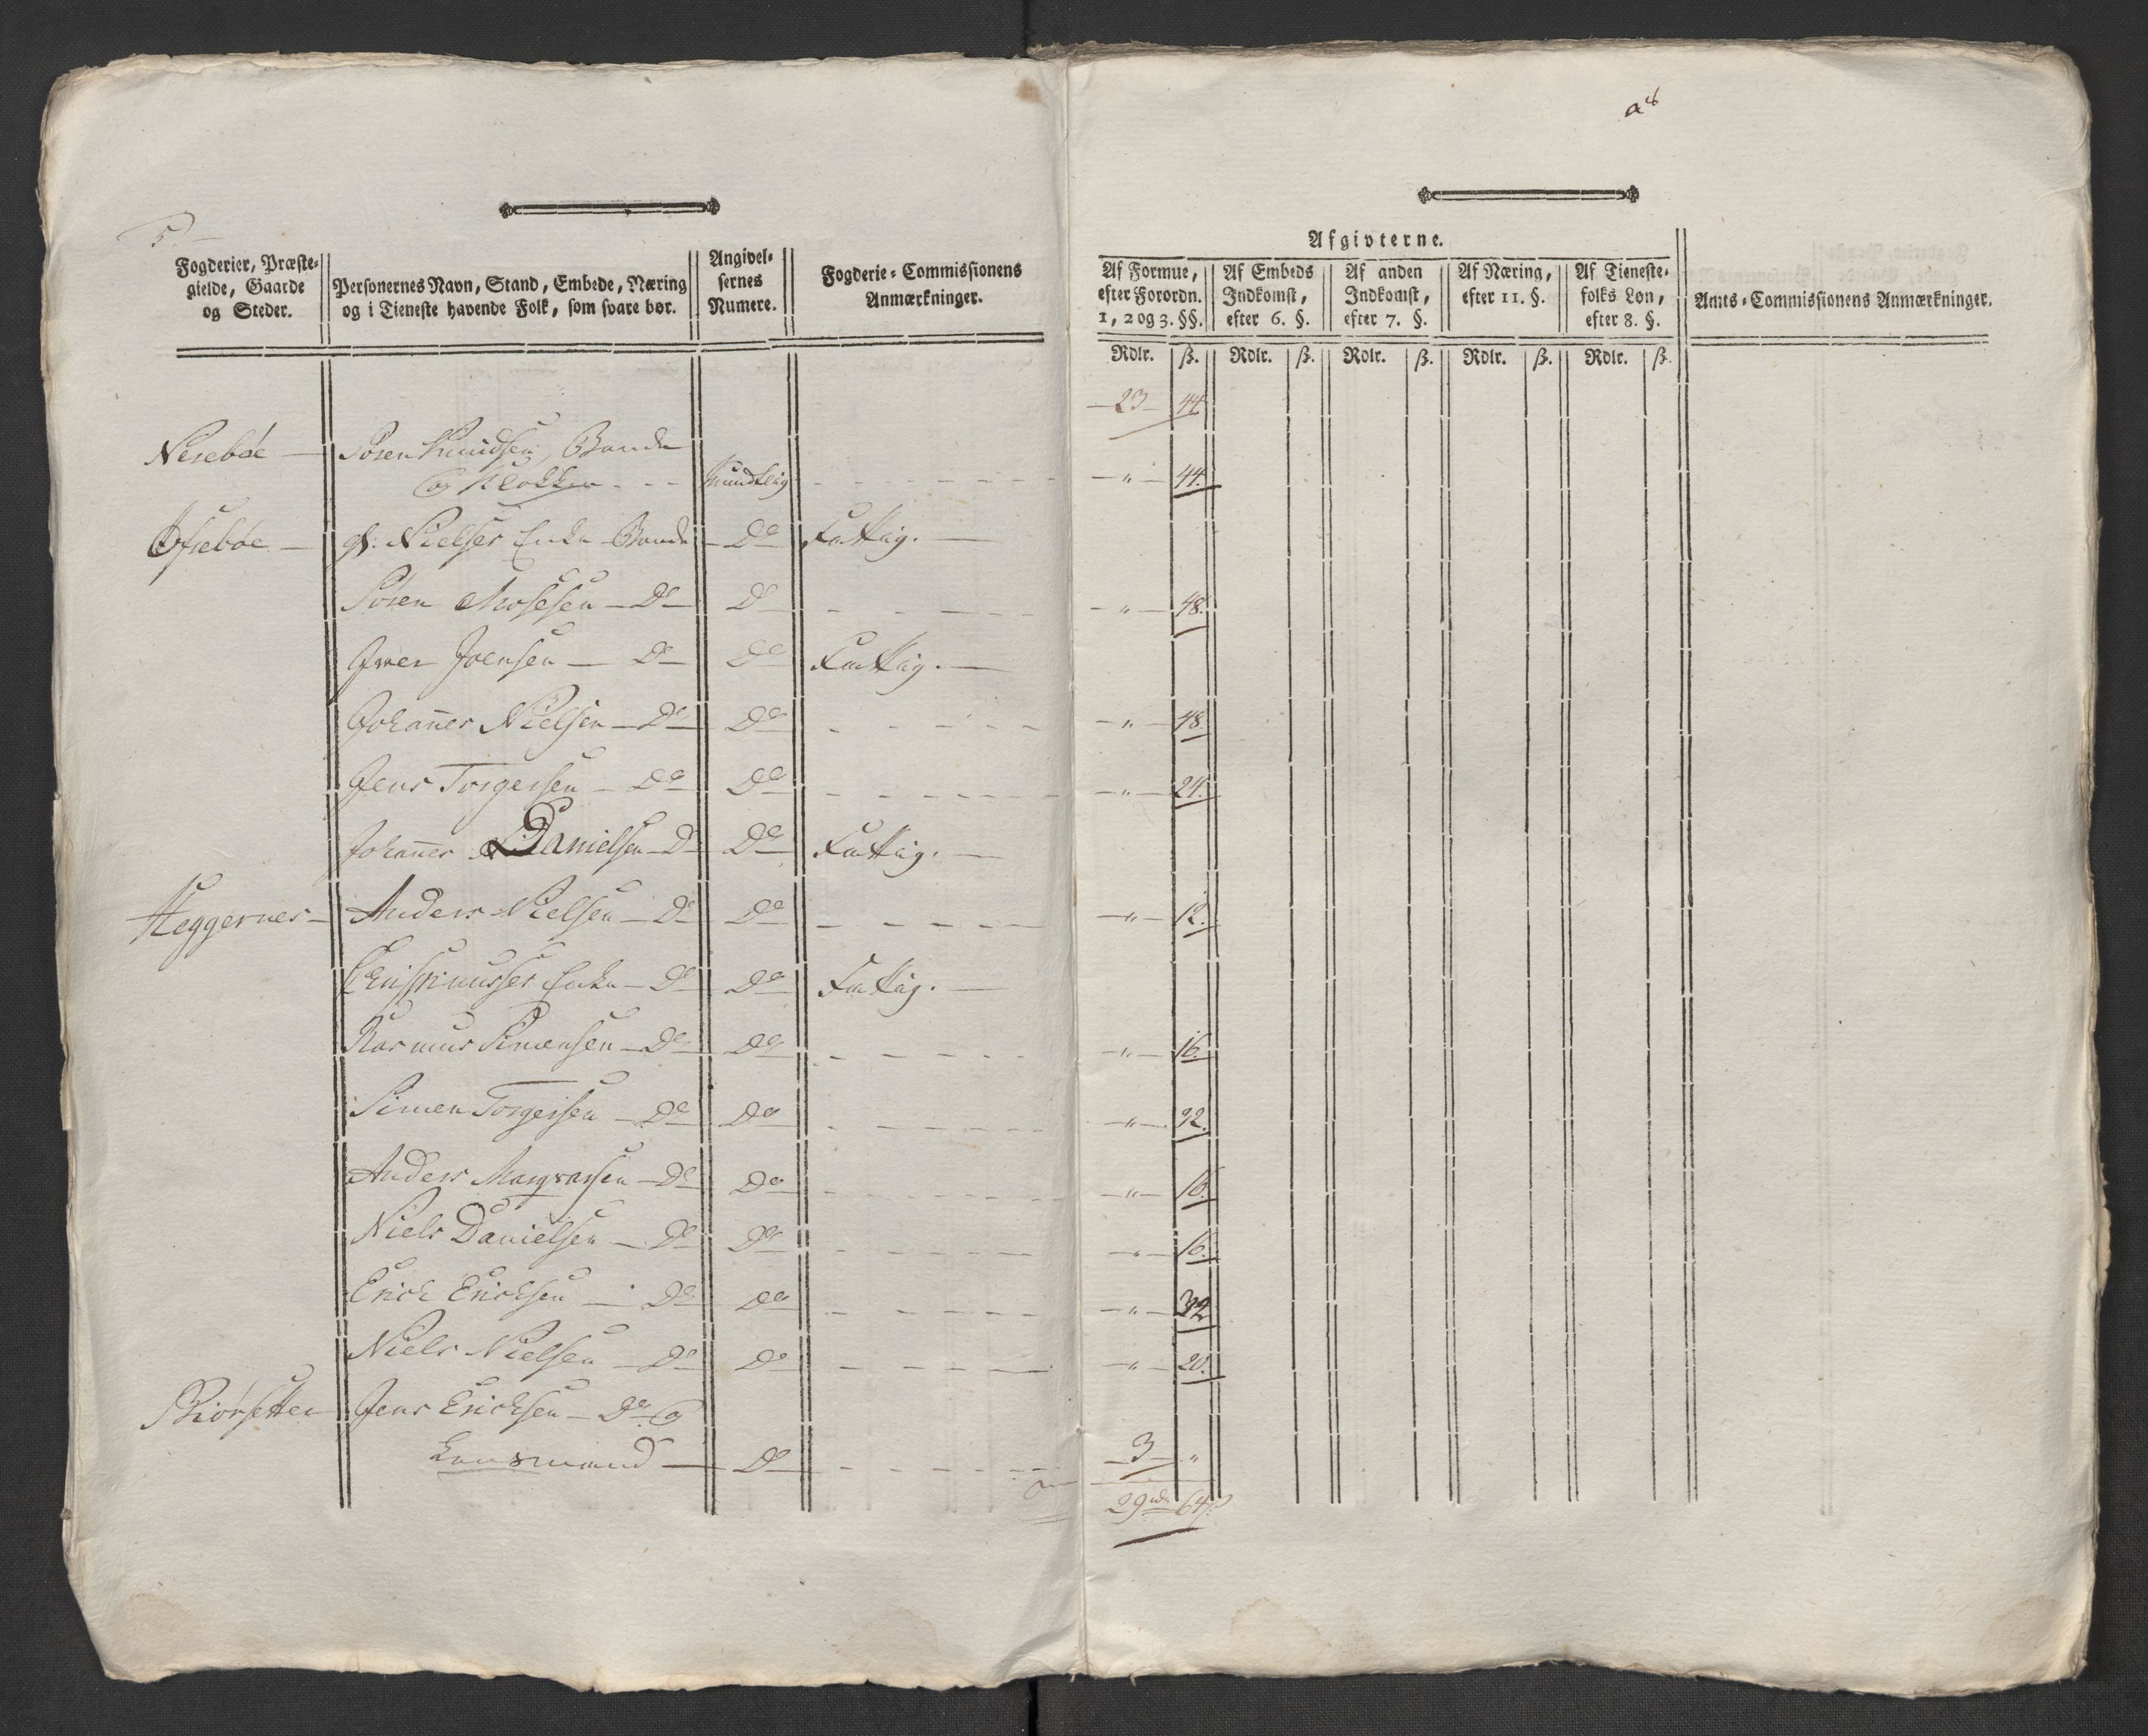 a8
5
Fogderier, Præste-
gielde, Gaarde
og Steder.
Personernes Navn, Stand, Embede, Næring
og i Tieneste havende Folk, som svare bør.
Angivel-
sernes
Numere.
Fogderie-Commissionens
Anmærkninger.
Afgivterne.
Af Formue,
efter Forordn.
1, 2 og 3. §§.
Af Embeds
Indkomst,
efter 6. §.
Af anden
Indkomst,
efter 7. §.
Af Næring,
efter 11. §.
Af Tieneste-
folks Løn,
efter 8. §.
Amts-Commissionens Anmærkninger.
Rdlr. ß. Rdlr. ß. Rdlr. ß. Rdlr. ß. Rdlr. ß.
23 44
Nesebøe — Søren Knudsen, Bonde
og Klokker - - - Mundtlig - - - „ 44.
Ofsebøe — gl. Nielses Enke Bonde — Do Fattig. —
Søren Mosesen — Do — Do - - - „ 48.
Iver Joensen — Do — Do Fattig. —
Johannes Nielsen — Do — Do - - - „ 48
Jens Torgersen — Do Do - - - „ 24.
Johannes Danielsen — Do Do Fattig. —
Heggernes — Anders Nielsen — Do Do - - - „ 12.
Enke — Do Do Fattig. —
Rasmus Simensen — Do Do - - - „ 16.
Simen Torgersen — Do Do - - - „ 32.
Anders — Do Do - - - „ 16.
Niels Danielsen — Do Do - - - „ 16.
Erick Ericksen — Do Do - - - „ 32
Niels Nielsen — Do Do - - - „ 20.
Biørsetter Jens Ericksen — Do og
Lensmand — Do - - - 3 „
29 rdr 64 ß